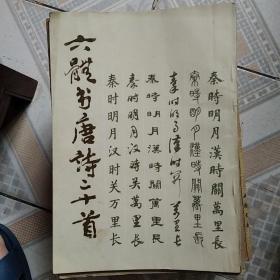 秦時明月漢時關萬里長
秦時明月漢時關萬里長
秦时明月漢时関萬里长
秦時明月漢時關萬里長
秦時明月漢時關萬里長
秦时明月汉时关万里长
六體书唐詩二十首